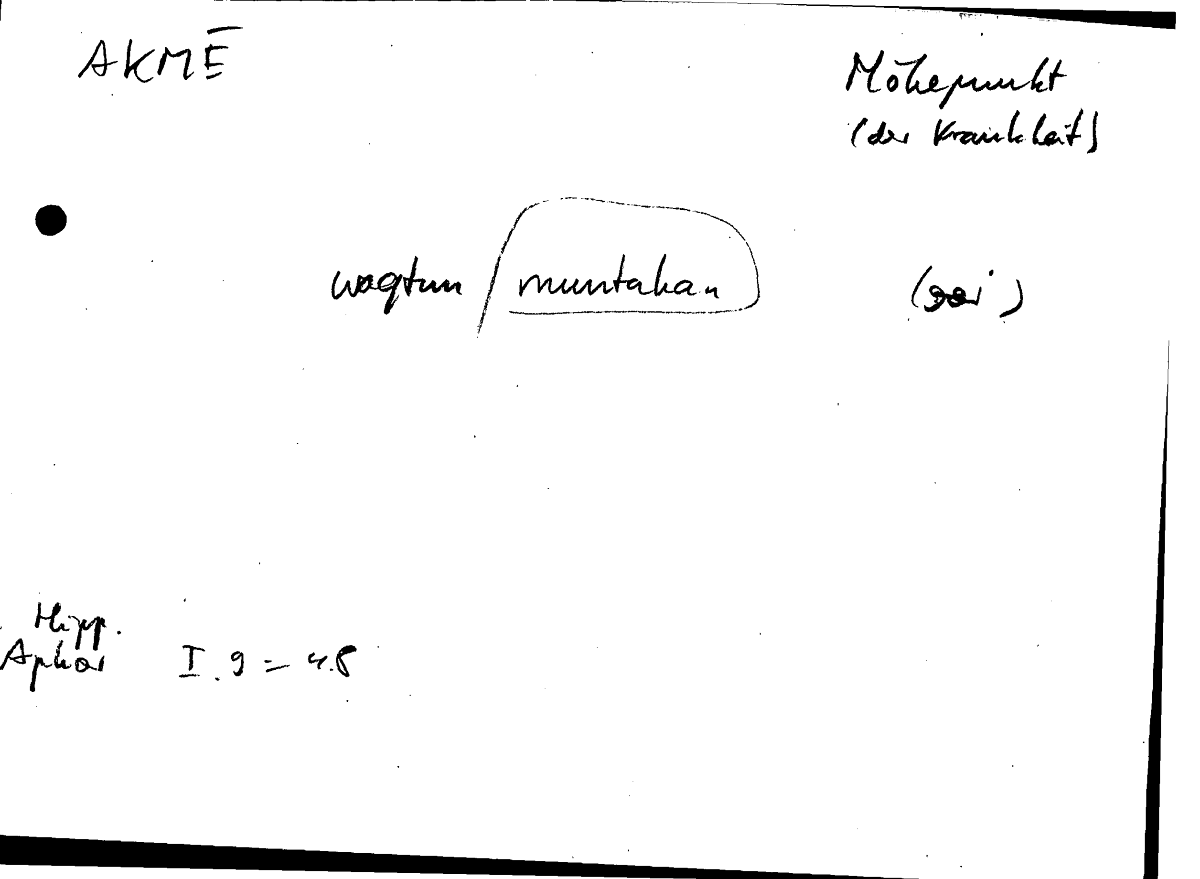 AKMĒ
Höhepunkt
(der Krankheit)
waqtun / muntahan
Hipp.
Aphor I.9 = 4.8